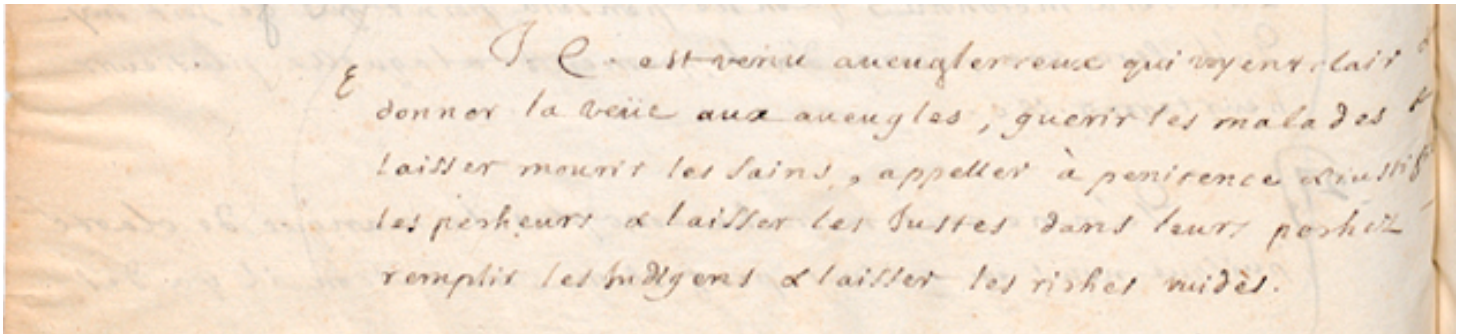 J. C. est venu aueugler ceux qui voyent clair &
ε donner la veüe aux aueugles, guerir les malades &
laisser mourir les sains, appeller à penitence & iustifier
les pecheurs & laisser les Justes dans leurs pechez
remplir les Indigens & laisser les riches vuides.